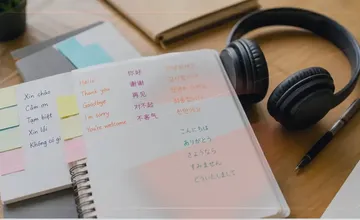 Xin chào
Cảm ơn
Tạm biệt
Xin lỗi
Không có gì
Thank you
Goodbye
I'm sorry
You're welcome
你好
谢谢
再见
对不起
不客气
こんにちは
ありがとう
さようなら
すみません
どういたしまして